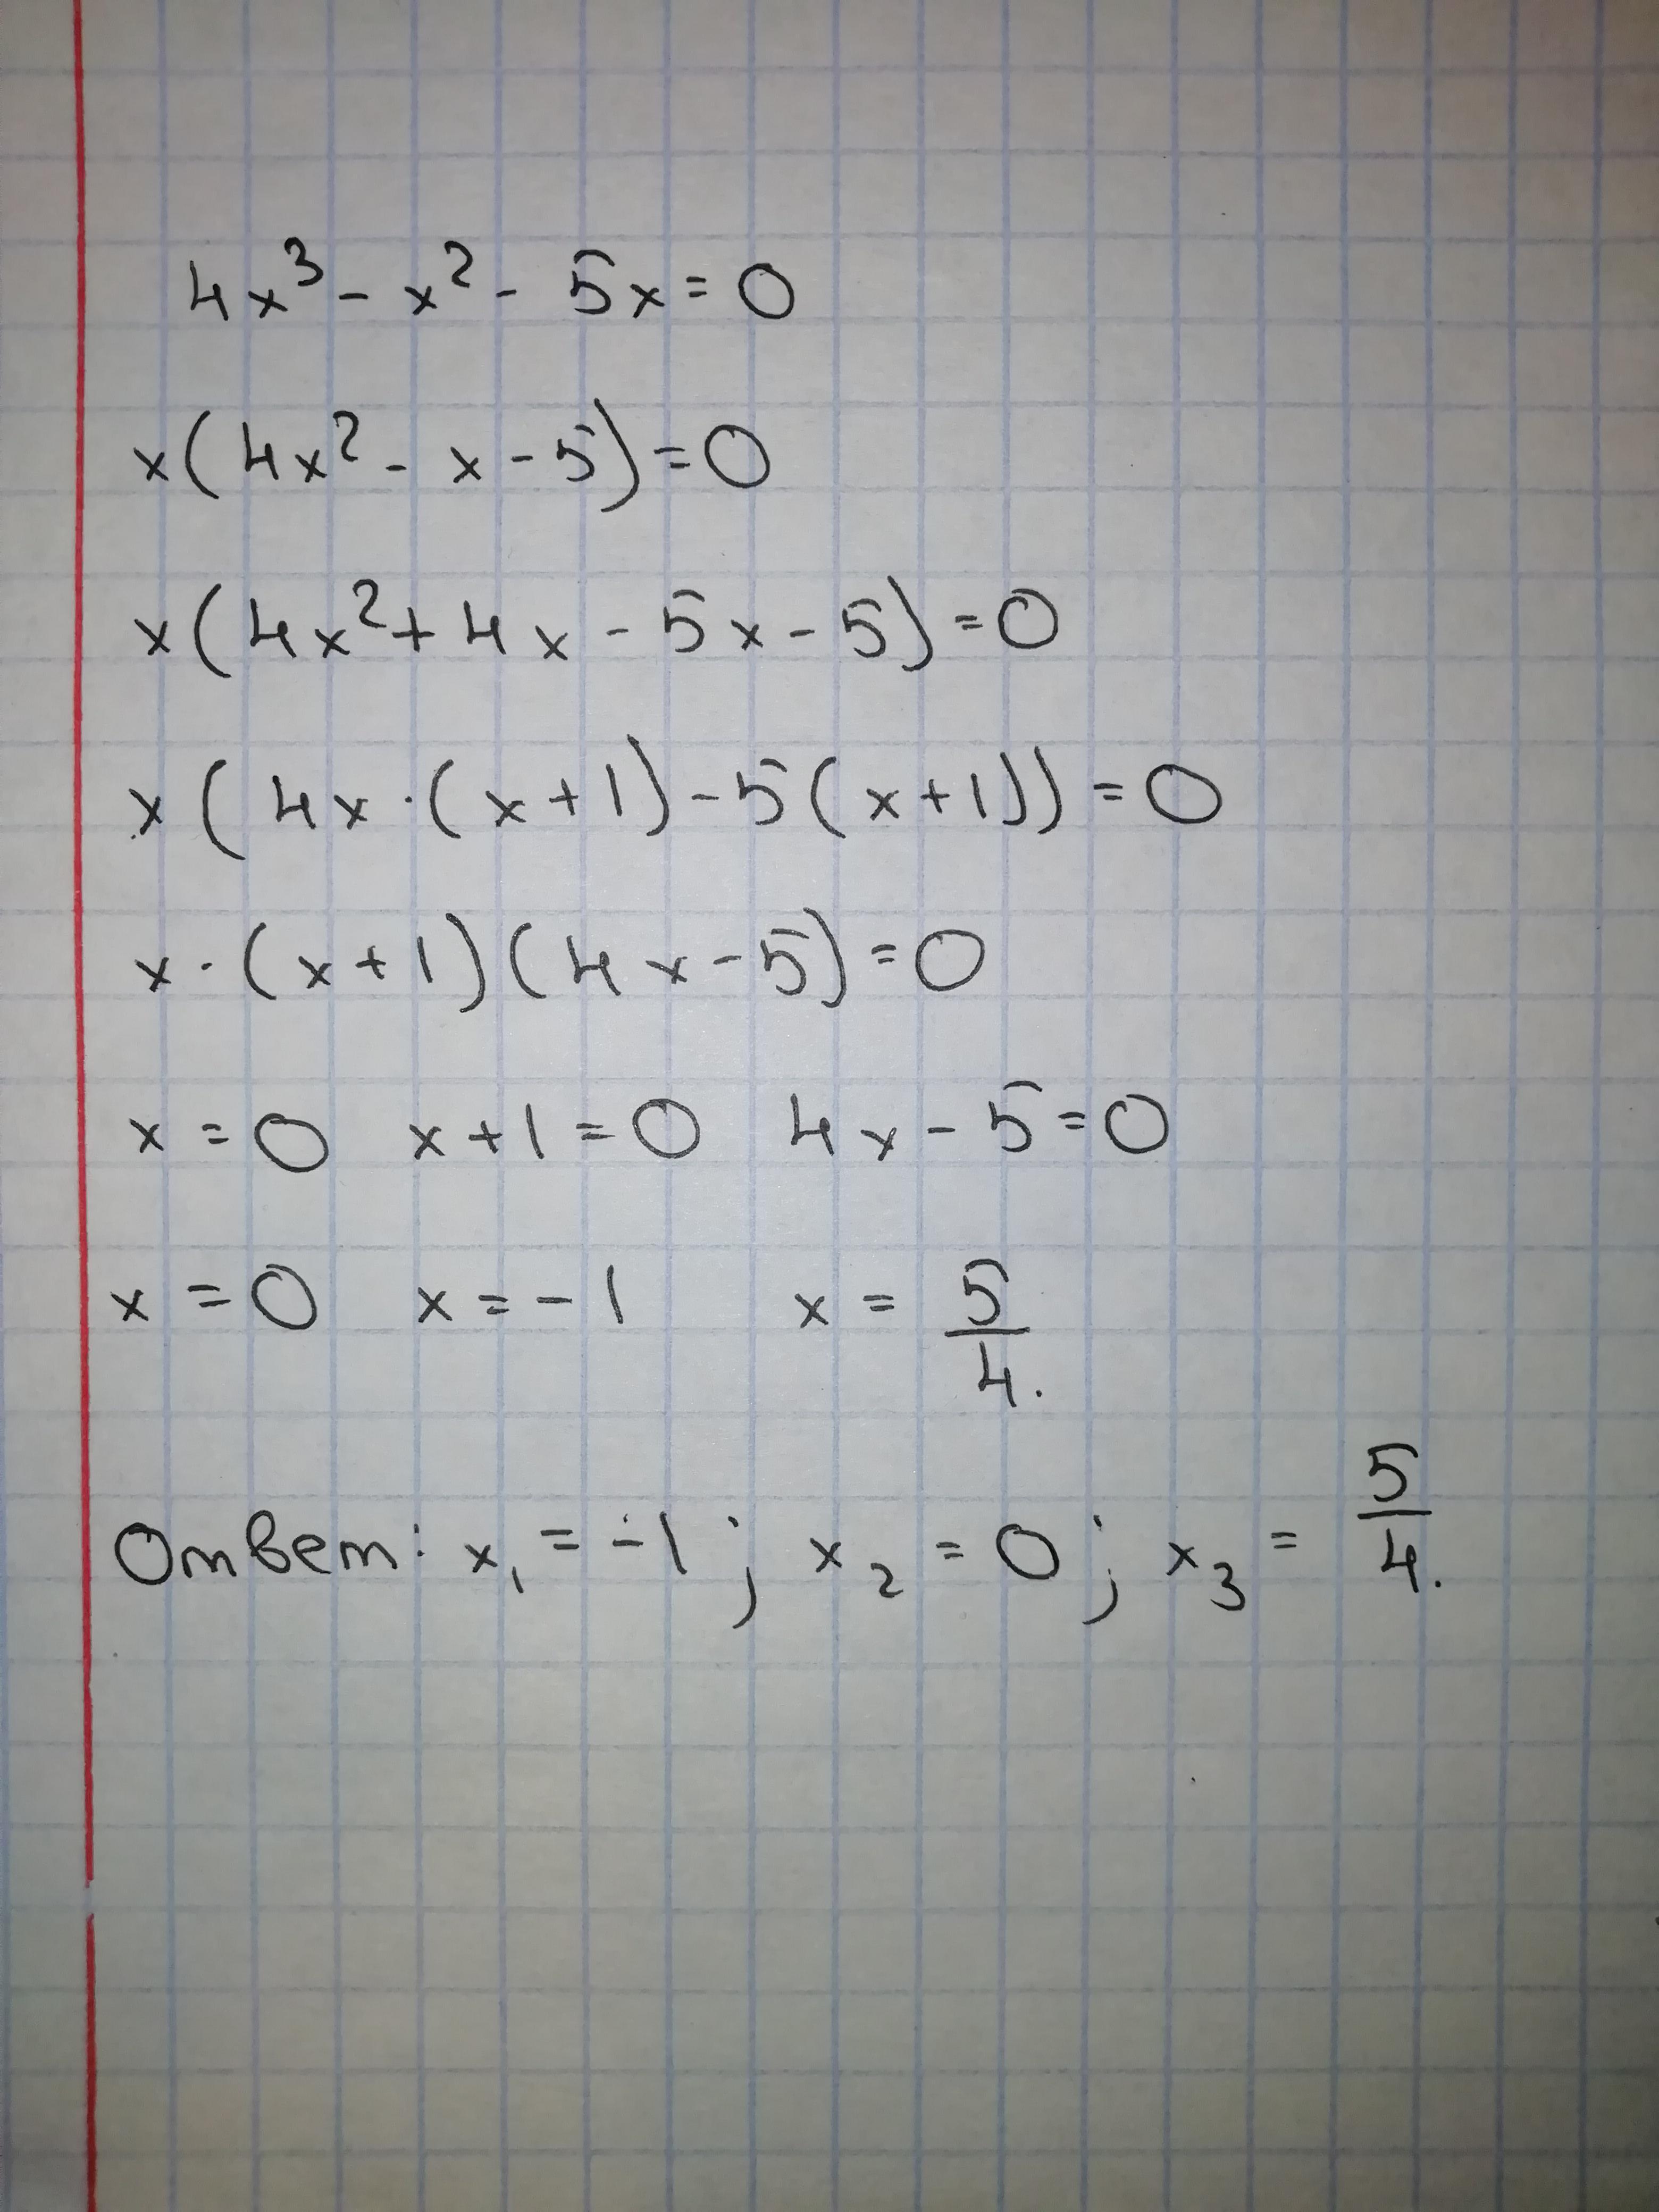 4x³ - x² - 5x = 0
x(4x² - x - 5) = 0
x(4x² + 4x - 5x - 5) = 0
x(4x·(x+1) - 5(x+1)) = 0
x·(x+1)(4x-5) = 0
x = 0 x+1 = 0 4x - 5 = 0
x = 0 x = -1 x = 5/4.
Ответ: x₁ = -1; x₂ = 0; x₃ = 5/4.